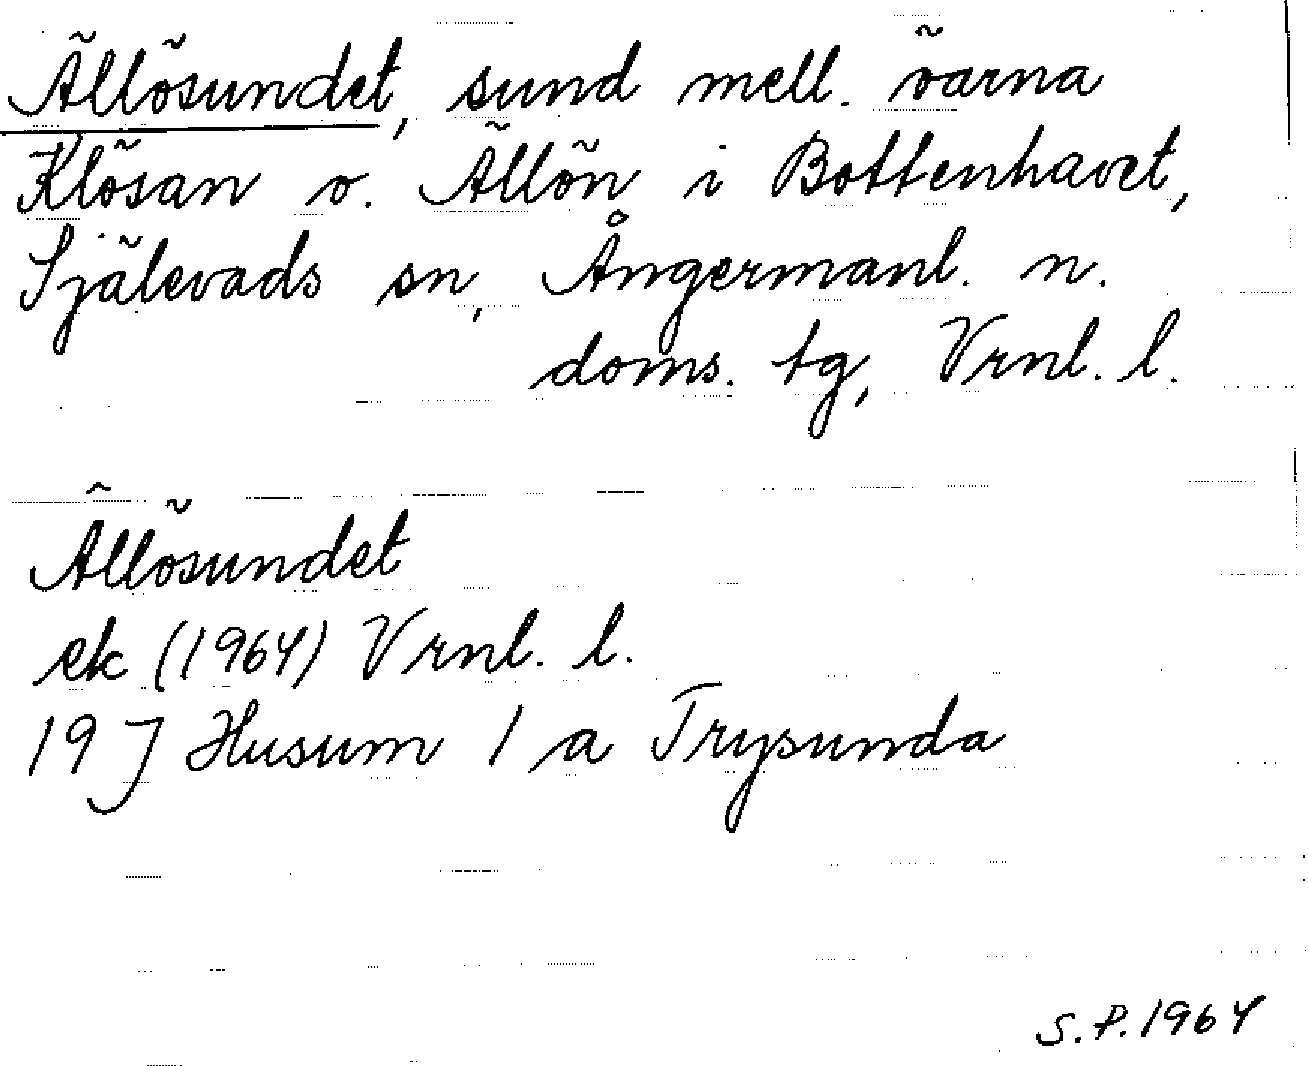 Ällösundet, sund mell. öarna
Klösan o. Ällön i Bottenhavet,
Själevads sn, Ångermanl. n.
doms. tg, Vrnl. l.
Ällösundet
ek (1964) Vrnl. l.
19 J Husum 1 a Trysunda
S.P. 1964